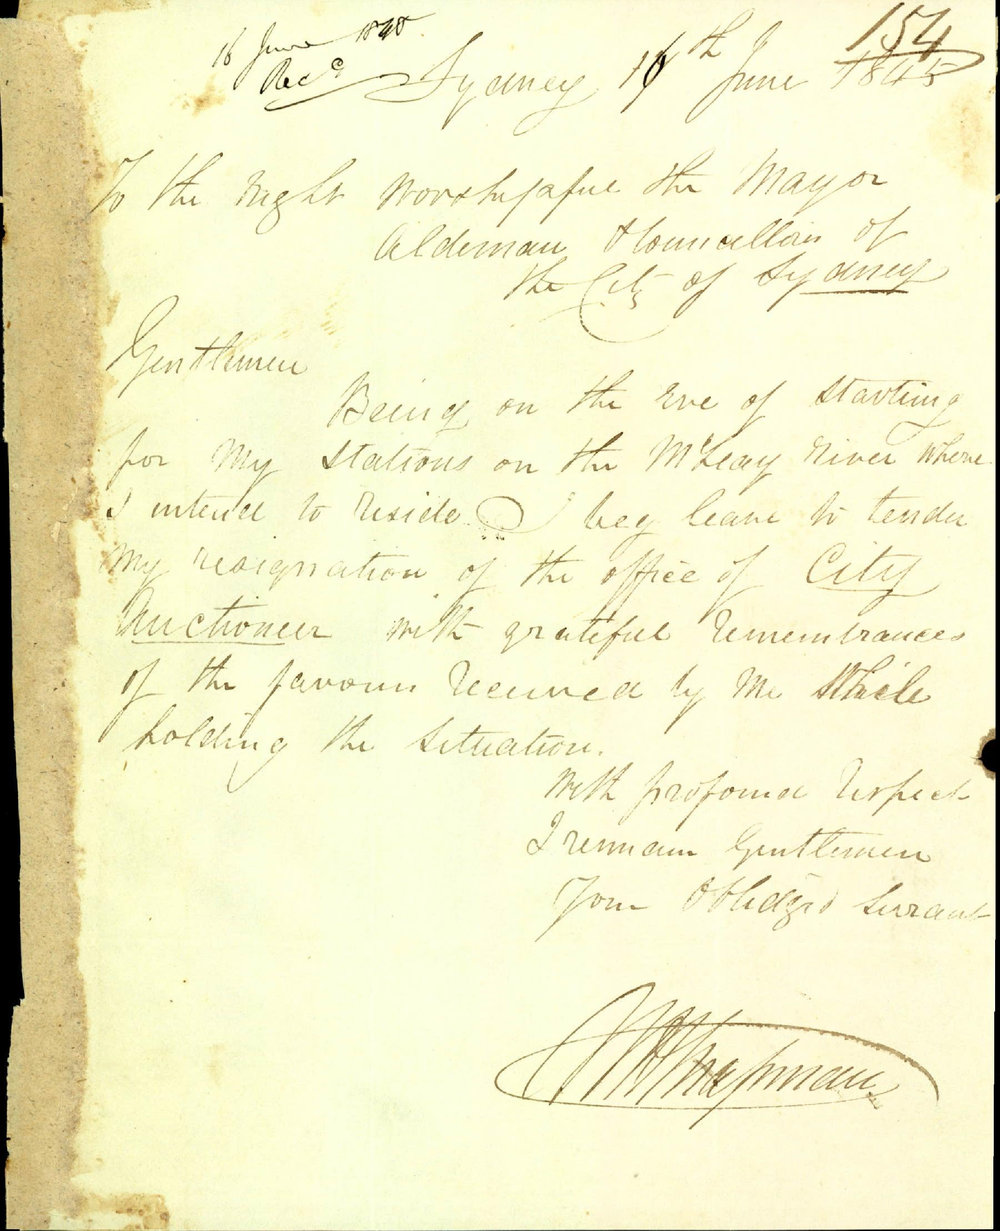 154
16 June 1845
Recd
Sydney 16th June 1845
To the Right Worshipful the Mayor
Aldeman & Councillors of
the City of Sydney
Gentlemen
Being on the Eve of starting
for My Stations on the McLeay River where
I intend to reside I beg leave to tender
My resignation of the office of City
Auctioneer with grateful remembrances
of the favours received by me While
holding the situation.
With profound Respect
I remain Gentlemen
Your Obliedged Servant
Chapman